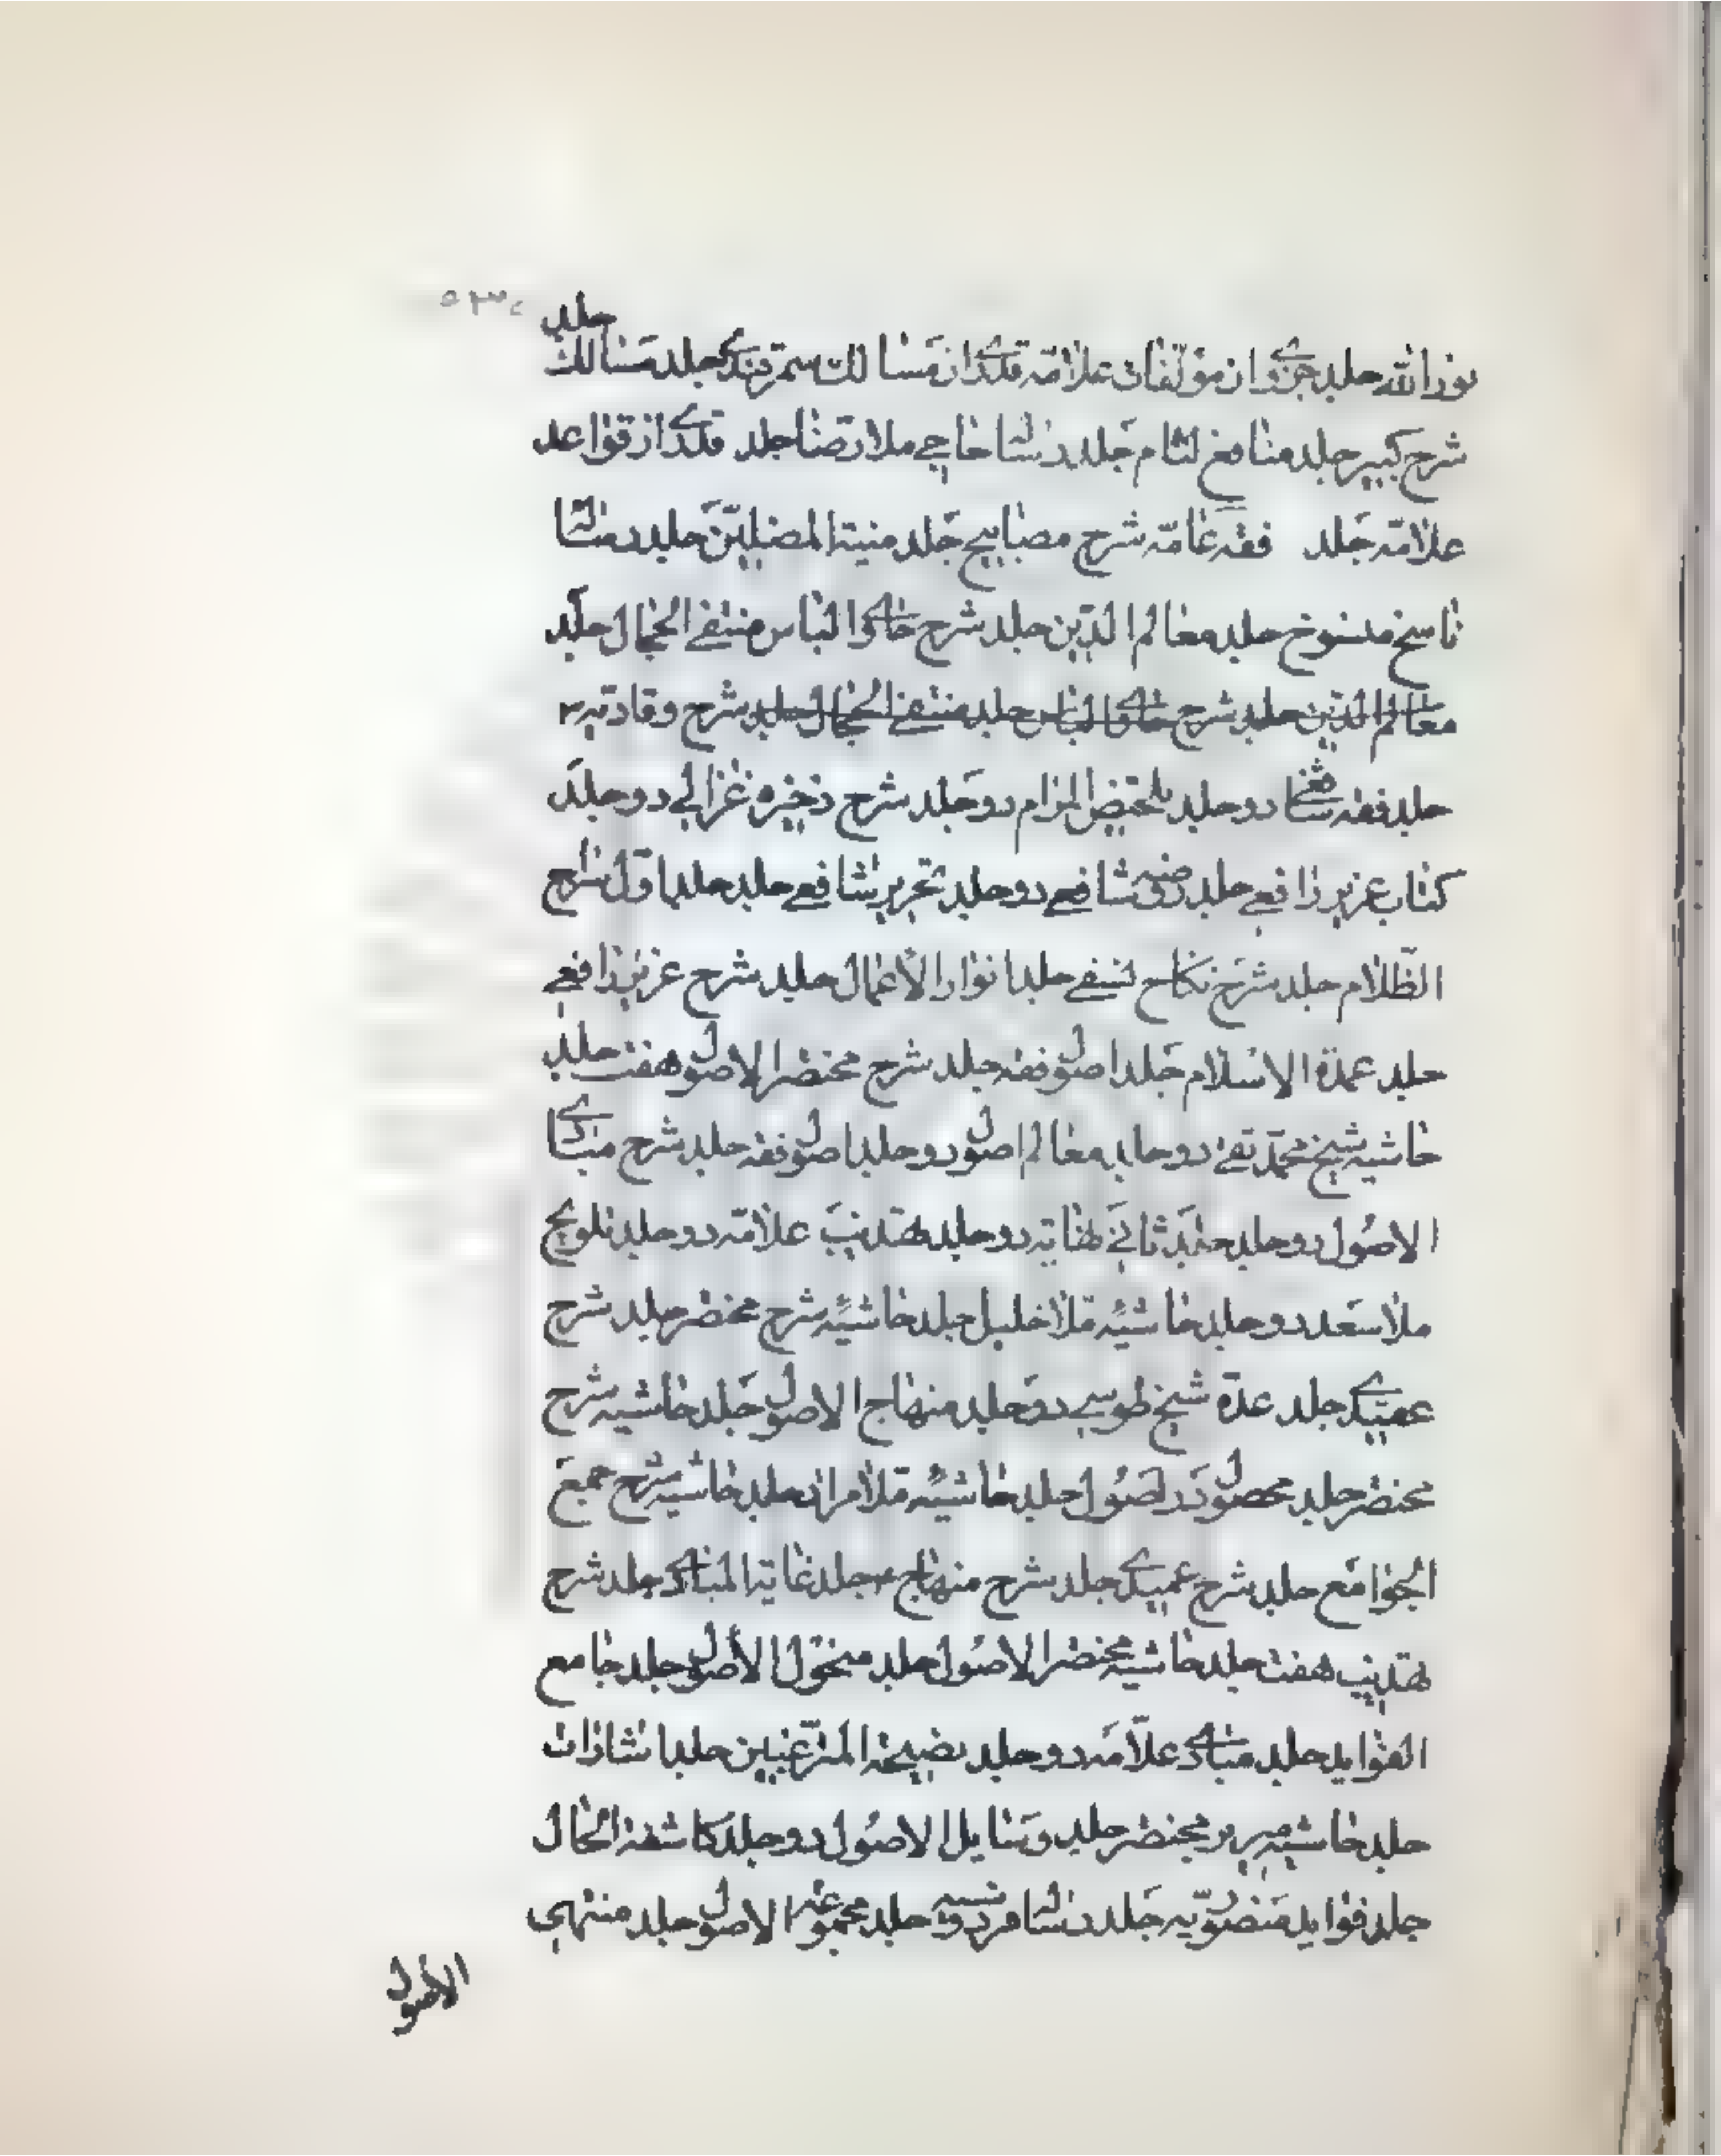 نورالله جلد جزوی از مؤلفات علامه قدری از مسالك سمرقندی جلد مسالك جلد
شرح کبیر جلد منافع لثام جلد رسالهٔ حاجی ملا رضا جلد قدری از قواعد
علامه جلد فقه عامه شرح مصابیح جلد منیة المصلین جلد رسالهٔ
ناسخ منسوخ جلد معالم الدین جلد شرح حاوی الباس منتقی الجمال جلد
معالم الدین جلد شرح حاوی الباس جلد منتقی الجمال جلد شرح وقادیه ۲
جلد فقه شافعی دو جلد تلخیص المرام دو جلد شرح ذخیره غزالی دو جلد
کتاب عزیز رافعی جلد روضه شافعی دو جلد تحریر شافعی جلد جلد اول سراج
الظلام جلد شرح نکاح نسفی جلد انوار الأعمال جلد شرح عزیز رافعی
جلد عمدة الاسلام جلد اصول فقه جلد شرح مختصر الاصول هفت جلد
حاشیه شیخ محمد تقی دو جلد معالم اصول دو جلد اصول فقه جلد شرح مبادی
الاصول دو جلد جلد ثانی نهایه دو جلد تهذیب علامه دو جلد تلویح
ملا سعد دو جلد حاشیهٔ ملا خلیل جلد حاشیهٔ شرح مختصر جلد شرح
عمیدی جلد عدة شیخ طوسی دو جلد منهاج الاصول جلد حاشیه شرح
مختصر جلد محصول در اصول جلد حاشیهٔ ملا مراد جلد حاشیه شرح جمع
الجوامع جلد شرح عمیدی جلد شرح منهاج ۲ جلد غایة المبادی جلد شرح
تهذیب هفت جلد حاشیه مختصر الاصول جلد منخول الأصول جلد جامع
الفواید جلد مبادی علامه دو جلد نصیحة المترغبین جلد اشارات
جلد حاشیه میر بر مختصر جلد وسایل الاصول دو جلد کاشفة الحال
جلد فواید منصوریه جلد رسالهٔ فردوسیه جلد مجموعهٔ الاصول جلد منتهی
الاصول